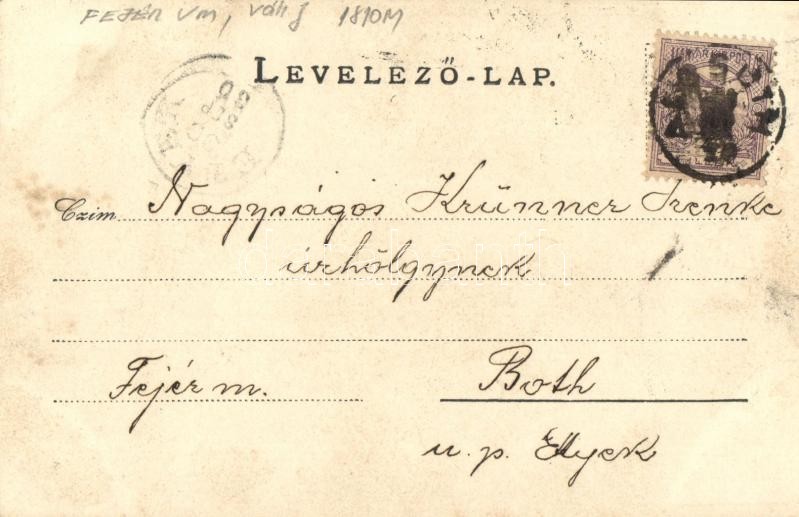 FEJÉR Vm,
LEVELEZŐ-LAP.
Czim Nagyságos Krünner Irénke
úrhölgynek
Fejér m. Both
u. p. Etyek